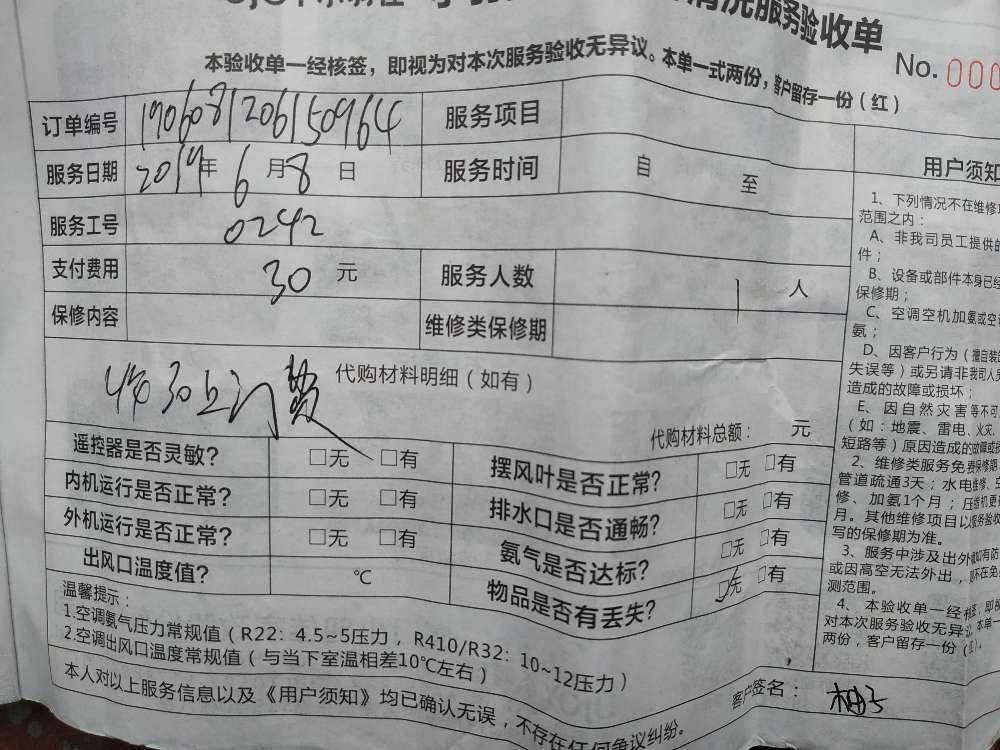 清洗服务验收单
本验收单一经核签，即视为对本次服务验收无异议。本单一式两份，客户留存一份（红）
No. 000
订单编号 1906081206150964 服务项目
服务日期 2019年 6月8日 服务时间 自 至
服务工号 0242
支付费用 30 元 服务人数 1 人
保修内容 维修类保修期
代购材料明细（如有）
收30上门费
代购材料总额： 元
遥控器是否灵敏？ □无 □有 摆风叶是否正常？ □无 □有
内机运行是否正常？ □无 □有 排水口是否通畅？ □无 □有
外机运行是否正常？ □无 □有 氨气是否达标？ □无 □有
出风口温度值？ ℃ 物品是否有丢失？ □无 □有
温馨提示：
1.空调氨气压力常规值（R22：4.5~5压力，R410/R32：10~12压力）
2.空调出风口温度常规值（与当下室温相差10℃左右）
本人对以上服务信息以及《用户须知》均已确认无误，不存在任何争议纠纷。
客户签名：
用户须知
1、下列情况不在维修
范围之内：
A、非我司员工提供的
件；
B、设备或部件本身已经
保修期；
C、空调空机加氨或空
氨；
D、因客户行为（擅自装
失误等）或另请非我司人员
造成的故障或损坏；
E、因自然灾害等不可
（如：地震、雷电、火灾、
短路等）原因造成的故障或损
2、维修类服务免费保修期
管道疏通3天；水电维修、空
修、加氨1个月；压缩机更
月。其他维修项目以服务验收
写的保修期为准。
3、服务中涉及出外墙如有防
或因高空无法外出，即不在免
测范围。
4、本验收单一经核签，即视
对本次服务验收无异议。本单一
两份，客户留存一份（红）。